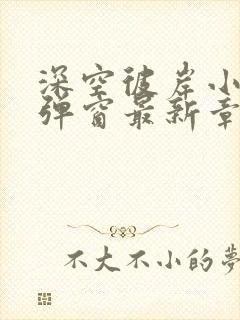 深空彼岸小
弹窗最新章
不大不小的夢